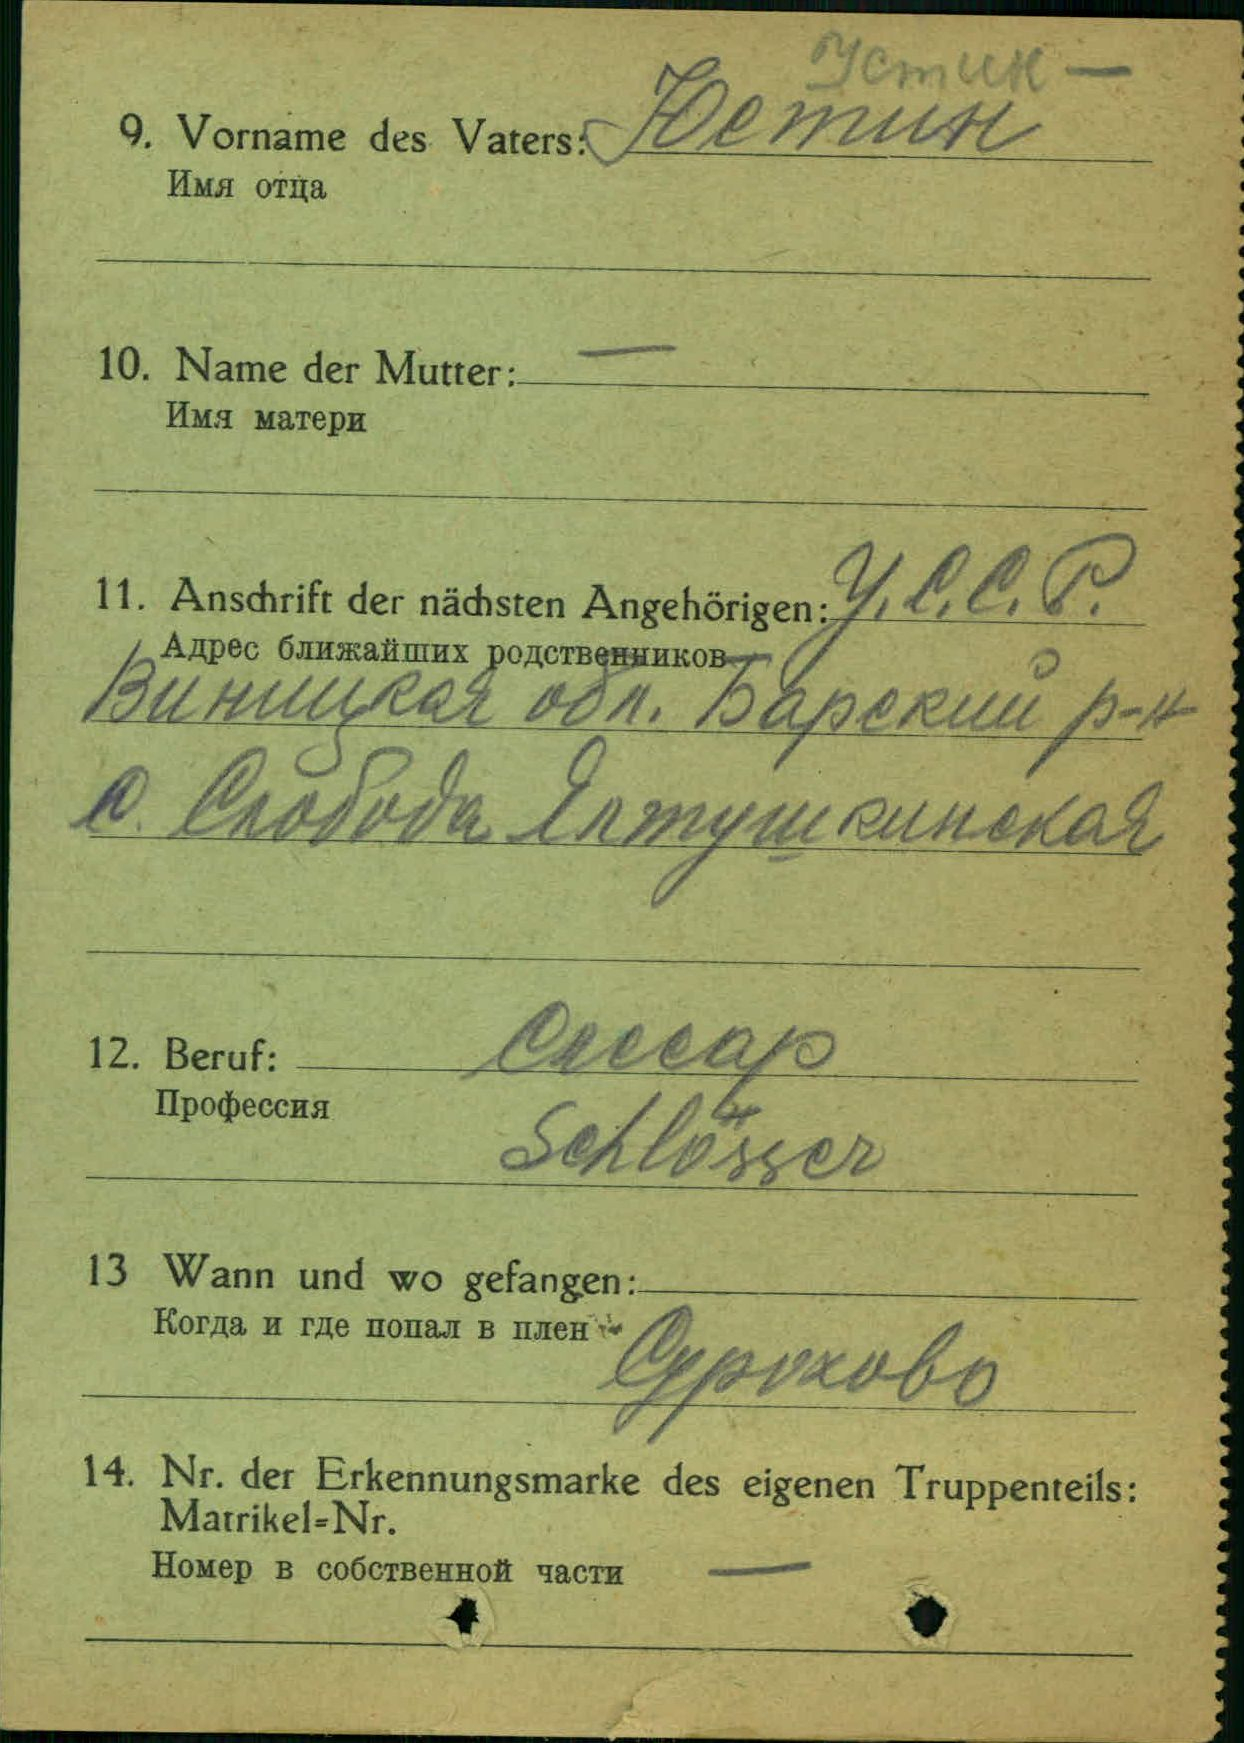 Устин —
9. Vorname des Vaters: Юстин
Имя отца
10. Name der Mutter: —
Имя матери
11. Anschrift der nächsten Angehörigen: У.С.С.Р.
Адрес ближайших родственников
Виницкая обл. Барский р-н
с. Слобода Ялтушкинская
12. Beruf: Слесар
Профессия
Schlösser
13 Wann und wo gefangen:
Когда и где попал в плен Сурохово
14. Nr. der Erkennungsmarke des eigenen Truppenteils:
Matrikel=Nr.
Номер в собственной части —